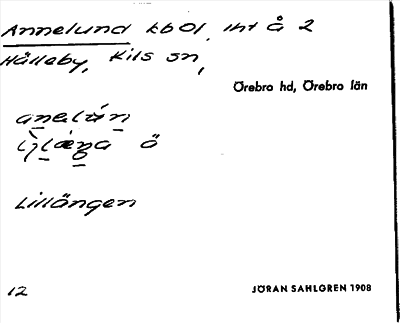 Annelund kbol. int å 2
Hälleby, Kils sn,
Örebro hd, Örebro län
Lillängen
12
JÖRAN SAHLGREN 1908